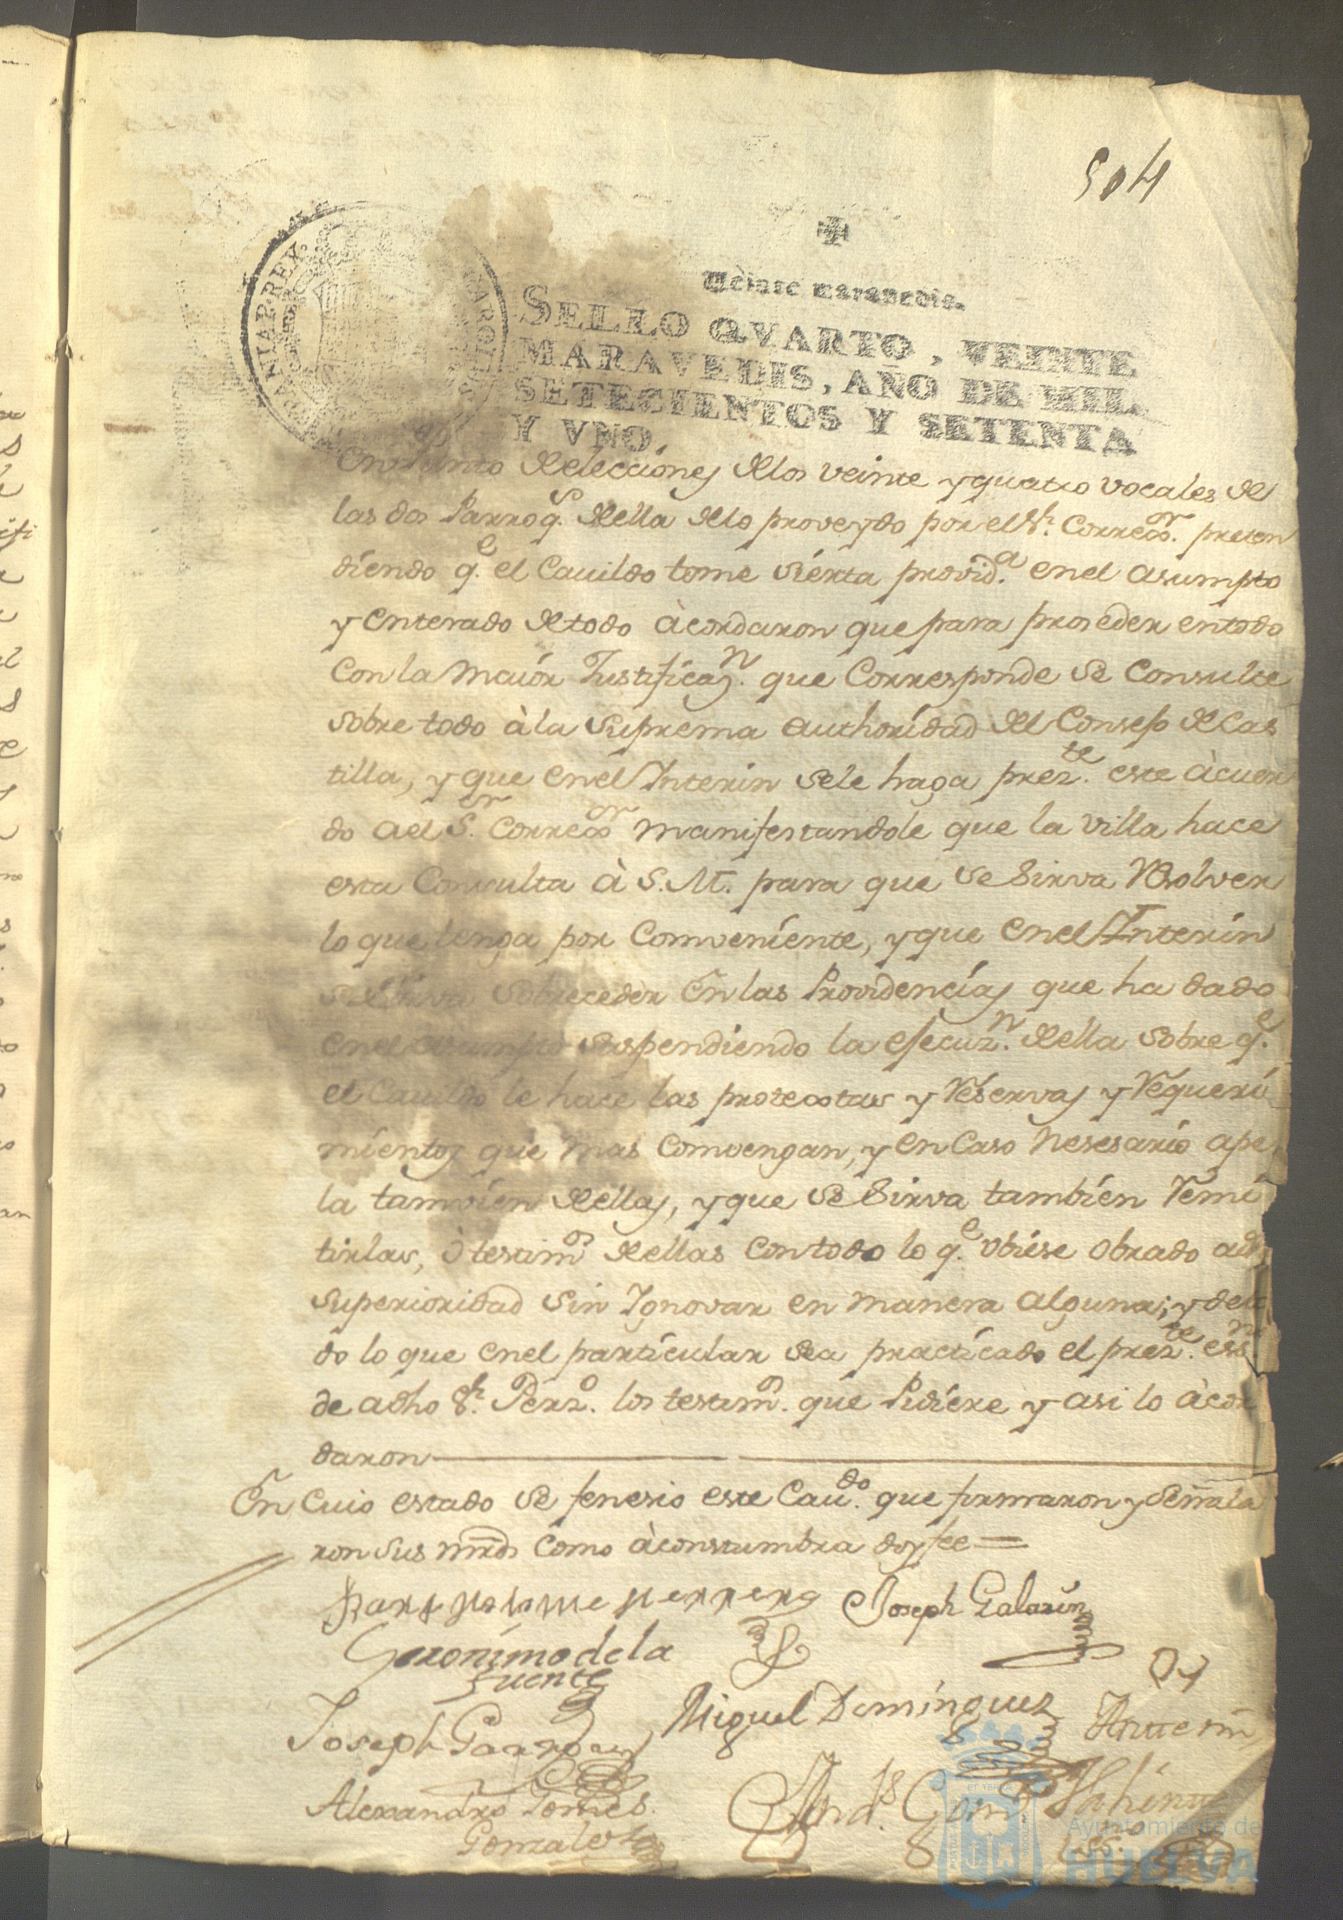 504
Veinte maravedis.
SELLO QVARTO, VEINTE
MARAVEDIS, AÑO DE MIL
SETECIENTOS Y SETENTA
Y VNO.
HISPANIAR. REX. CAROLUS
elecciones delos veinte y quatro vocales de
las dos Parroq.s della delo proveydo por el Sr. Correor. preten
diendo q.e el Cauildo tome sierta provid.a enel asumpto
y enterado detodo àcordaron que para proseder entodo
Con la maior Justificaz.n que Corresponde se Consulte
sobre todo à la suprema authoridad del Consejo de Cas
tilla, y que enel Interin sele haga prez.te este àcuer
do ael S.r Correor manifestandole que la villa hace
esta Consulta à S.M. para que se sirva Resolver
lo que tenga por Comveniente, y que enel Interin
se sirva sobreceder en las Providencias que ha dado
enel asumpto suspendiendo la ejecuz.n della sobre q.e
el Cauildo le hace las protestas y Reservas y Requeri
mientos que mas Comvengan, y en Caso nesesario ape
la tamvien dellas, y que se sirva tambien remi
tirlas, ò testim.o dellas con todo lo q.e vbiese obrado adha
superioridad sin Ignovar en manera alguna; y de to
do lo que enel particular sea practicado el prez.te ess.no
de adho Sr. Perz.o los testim.o que Pidiere y asi lo àcor
daron
En Cuio estado se fenesio este Cau.do que firmaron y señala
ron sus mrds como àcostumbra doy fee =
Bartholome Herrero Joseph Galarin
Geronimo de la
Fuente
Miguel Dominguez
Joseph
Alexandro Gomes
Gonzales
Ante mi
Ayuntamiento de
HUELVA